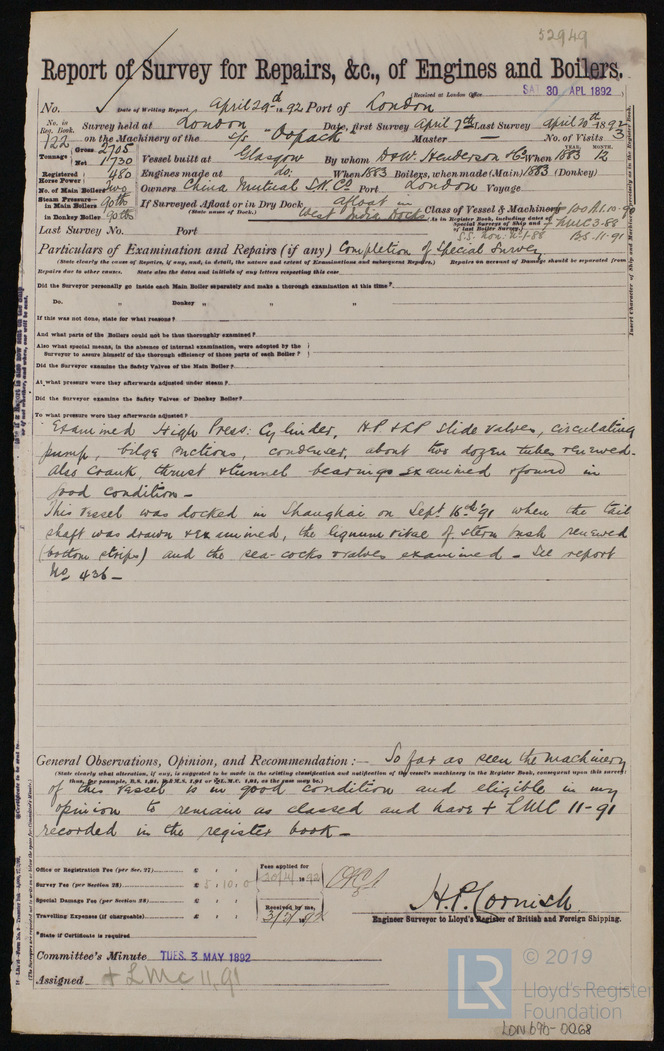 52949
Report of Survey for Repairs, &c., of Engines and Boilers.
Received at London Office SAT 30 APL 1892
No. State of Writing Report, April 29th 1892 Port of London
No. in Reg. Book. Survey held at London Date, first Survey April 7th Last Survey April 20th 1892
122 on the Machinery of the S/S "Oopack" Master — No. of Visits 3
Tonnage Gross 2705 Net 1730 Vessel built at Glasgow By whom D & W. Henderson & Co When 1883 YEAR. MONTH. 12
Registered Horse Power 480 Engines made at do. When 1883 Boilers, when made (Main) 1883 (Donkey)
No. of Main Boilers two Owners China Mutual S.N. Co. Port London Voyage
Steam Pressure— in Main Boilers 90 lbs If Surveyed Afloat or in Dry Dock, afloat in
in Donkey Boiler 90 lbs (State name of Dock.) West India Docks Class of Vessel & Machinery 100 A1. 10-90
(As in Register Book, including dates of Special Surveys of Ship and of last Boiler Survey) + LMC 3.88
Last Survey No. Port S.S. Hon. No 1-88 B.S. 11-91
Particulars of Examination and Repairs (if any) Completion of Special Survey
(State clearly the cause of Repairs, if any, and, in detail, the nature and extent of Examinations and subsequent Repairs.) Repairs on account of Damage should be separated from
Repairs due to other causes. State also the dates and initials of any letters respecting this case
Did the Surveyor personally go inside each Main Boiler separately and make a thorough examination at this time?
Do. " Donkey " " "
If this was not done, state for what reasons?
And what parts of the Boilers could not be thus thoroughly examined?
Also what special means, in the absence of internal examination, were adopted by the
Surveyor to assure himself of the thorough efficiency of those parts of each Boiler?
Did the Surveyor examine the Safety Valves of the Main Boiler?
At what pressure were they afterwards adjusted under steam?
Did the Surveyor examine the Safety Valves of Donkey Boiler?
To what pressure were they afterwards adjusted?
Examined High Press: Cylinder, HP & LP Slide valves, circulating
pump, bilge suctions, condenser, about two dozen tubes renewed.
also crank, thrust & tunnel bearings examined & found in
good condition —
This vessel was docked in Shanghai on Sept. 16th '91 when the tail
shaft was drawn & examined, the lignum vitae of stern bush renewed
(bottom strips) and the sea-cocks & valves examined — See report
No. 436 —
General Observations, Opinion, and Recommendation :— So far as seen the machinery
(State clearly what alteration, if any, is suggested to be made in the existing classification and notification of the vessel's machinery in the Register Book, consequent upon this survey;
of this vessel is in good condition and eligible in my
opinion to remain as classed and have + LMC 11-91
recorded in the register book —
Office or Registration Fee (per Sec. 27) £ Fees applied for
Survey Fee (per Section 28) £ 5.10.0 20/4/1892
Special Damage Fee (per Section 28) £ Received by me,
Travelling Expenses (if chargeable) £ 3/5/1892
H.P. Cornish
Engineer Surveyor to Lloyd's Register of British and Foreign Shipping.
*State if Certificate is required
Committee's Minute TUES. 3 MAY 1892
Assigned + LMC 11,91
LR © 2019
Lloyd's Register
Foundation
LDN 690-0068